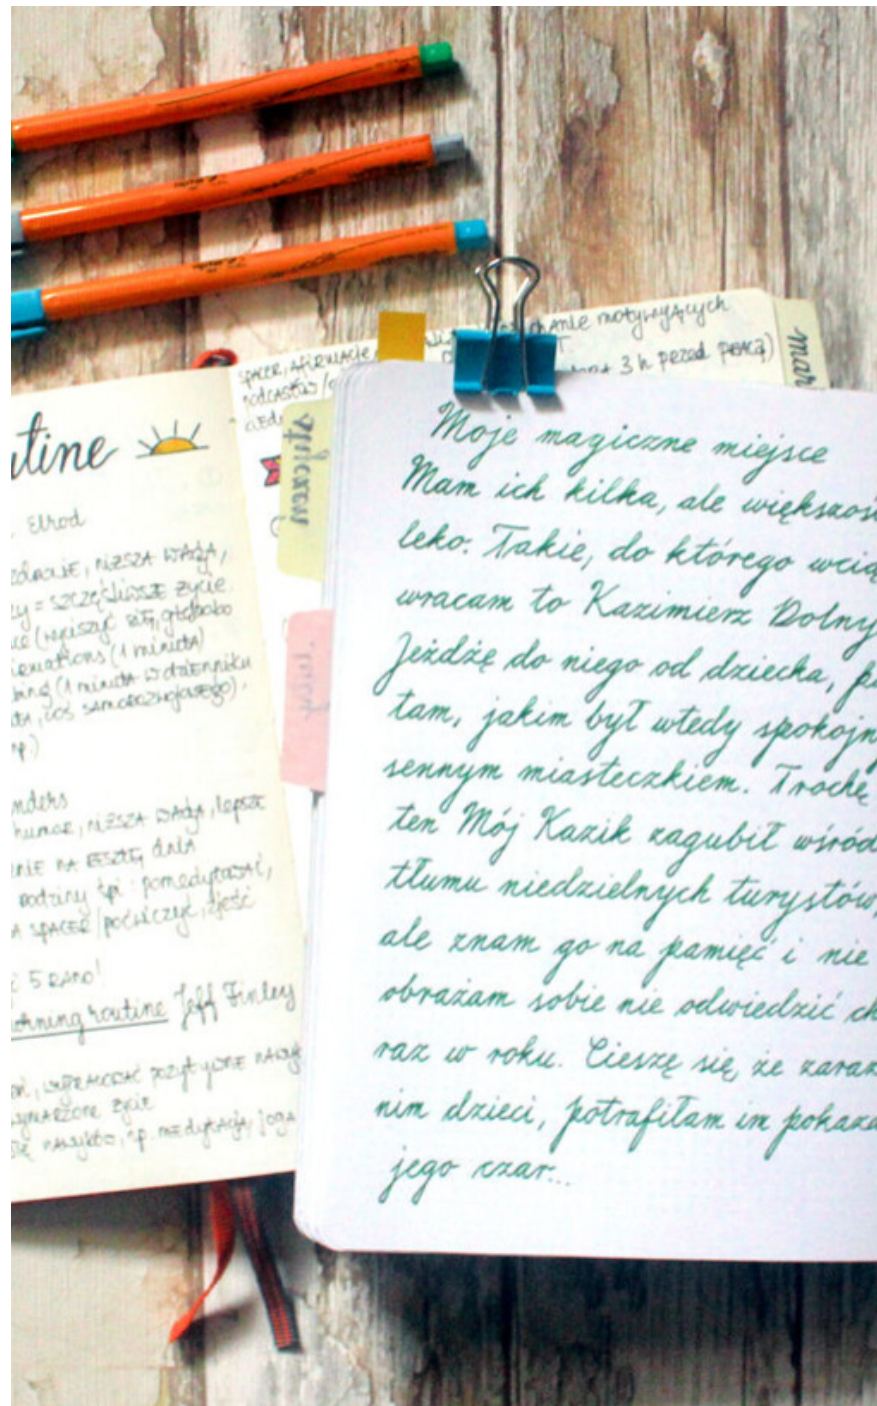 utine
. Elrod
zdrowie, niższa waga,
y = szczęśliwsze życie.
ce (wyciszyć się, głęboko
irmations (1 minuta)
bing (1 minuta w dzienniku
ta, coś samorozwojowego).
np.)
nders
humor, niższa waga, lepsze
enie na resztę dnia
rodziny śpi: pomedytować,
a spacer / poćwiczyć, zjeść
5 rano!
orning routine Jeff Finley
wypracować pozytywne nawyk
wymarzone życie
się nawyków, np. medytacja, joga
spacer, afirmacje
podcastów /
motywujących
3 h przed pracą)
styczeń
luty
mar
Moje magiczne miejsce
Mam ich kilka, ale większoś
leko. Takie, do którego wcią
wracam to Kazimierz Dolny
Jeżdżę do niego od dziecka, pa
tam, jakim był wtedy spokojn
sennym miasteczkiem. Trochę
ten Mój Kazik zagubił wśród
tłumu niedzielnych turystów,
ale znam go na pamięć i nie
obrażam sobie nie odwiedzić ch
raz w roku. Cieszę się, że zaraz
nim dzieci, potrafiłam im pokaza
jego czar...